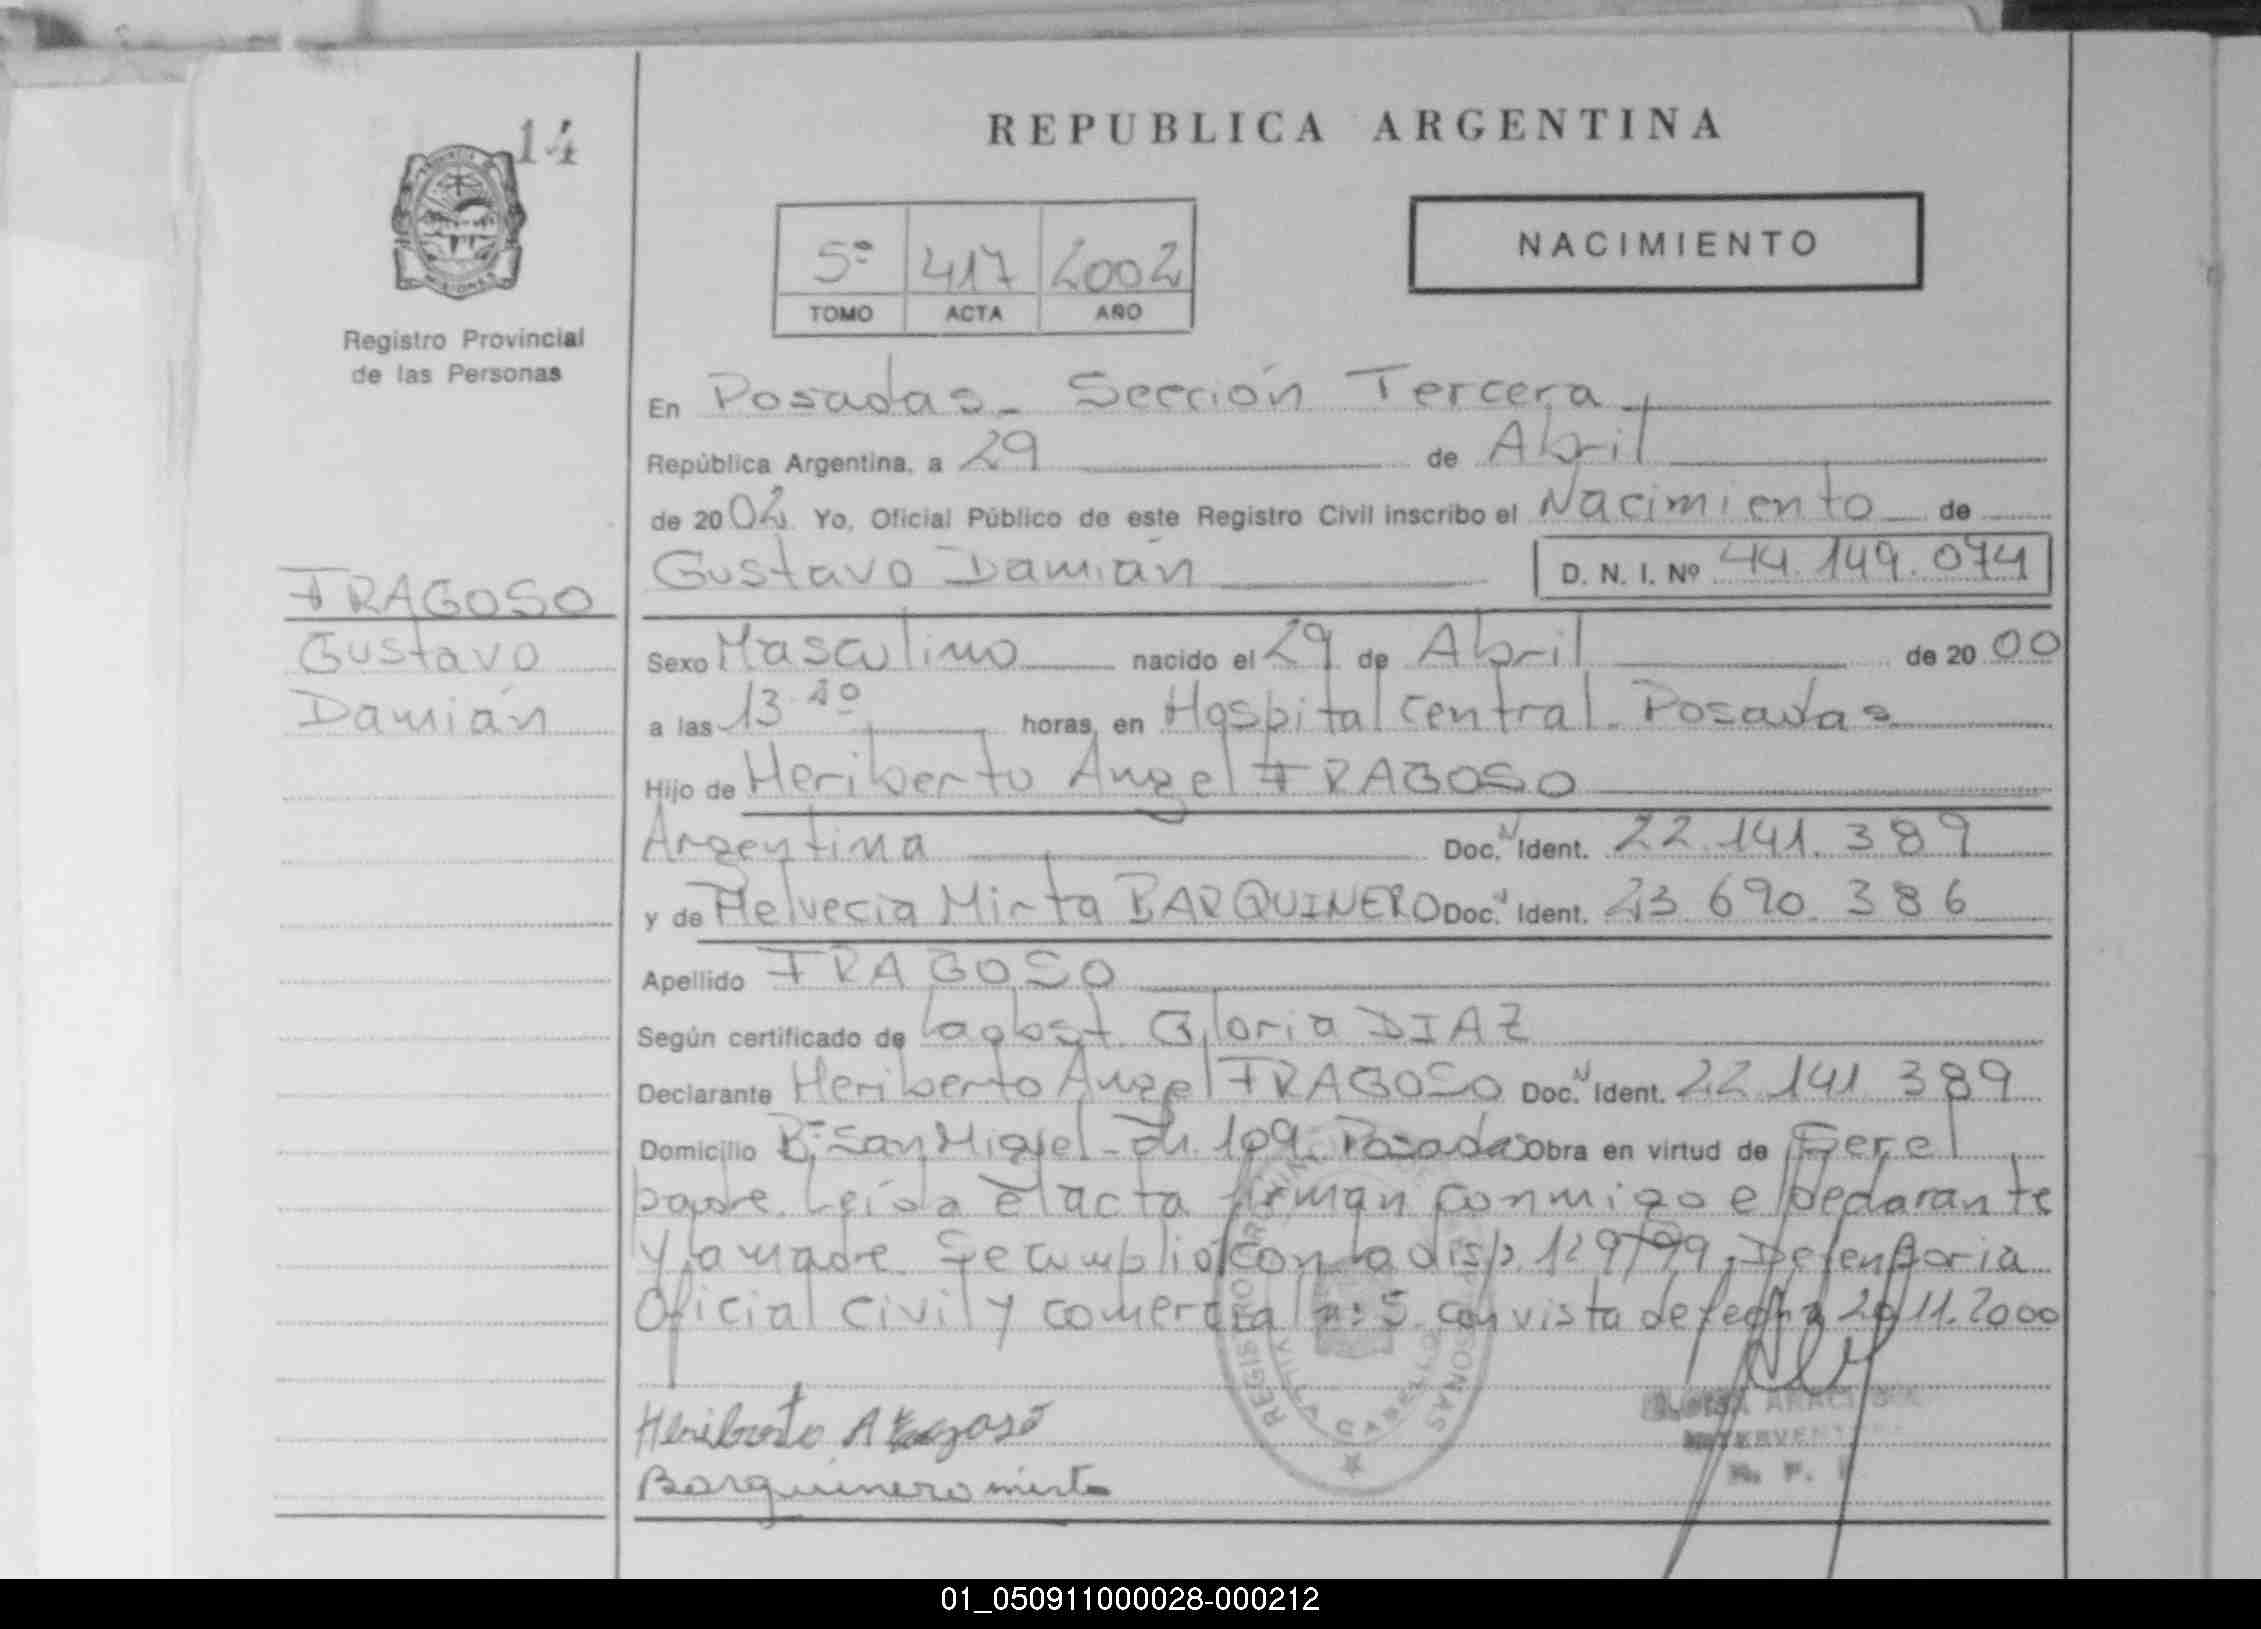 14
REPUBLICA ARGENTINA
NACIMIENTO
5º 417 2002
TOMO ACTA AÑO
Registro Provincial
de las Personas
En Posadas - Sección Tercera
República Argentina, a 29 de Abril
de 2002 Yo, Oficial Público de este Registro Civil inscribo el Nacimiento de
Gustavo Damián D. N. I. Nº 44.149.074
FRAGOSO
Gustavo
Damián
Sexo Masculino nacido el 29 de Abril de 2000
a las 13 horas, en Hospital Central. Posadas
Hijo de Heriberto Angel FRAGOSO
Argentina Doc. N Ident. 22.141.389
y de Helvecia Mirta BARQUINERO Doc. N Ident. 23.690.386
Apellido FRAGOSO
Según certificado de Gloria DIAZ
Declarante Heriberto Angel FRAGOSO Doc. N Ident. 22.141.389
Domicilio Bº San Miguel - Ch. 109. Posadas Obra en virtud de Ser el
padre. Leída el acta firman conmigo el declarante
y la madre. Se cumplió con la disp. 129/99, Defensoria
Oficial civil y comercial nº 5 con vista de fecha 20.11.2000
Heriberto A Fragoso
Barquinero mirta
REGISTRO PERSONAS
VILLA CABELLO
INTERVENT
R. P.
01_050911000028-000212